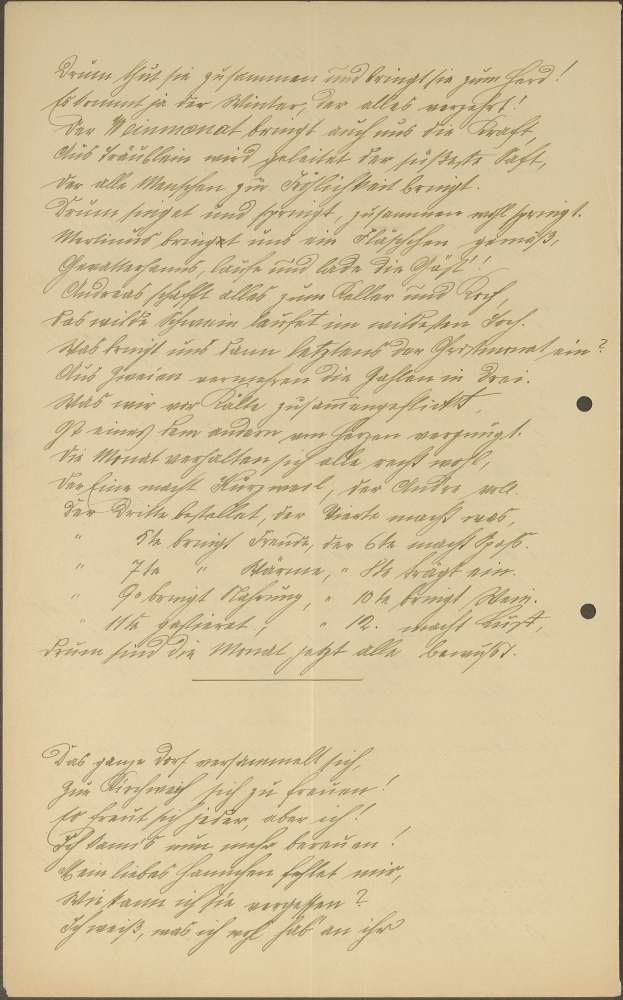 Drum thut sie zusammen und bringt sie zum Herd!
Es kommt ja der Winter, der alles verzehrt!
Der Weinmonat bringt auch uns die Kraft,
Aus Träublein wird geleitet der süßeste Saft,
Der alle Menschen zur Fröhlichkeit bringt.
Drum singet und springt, zusammen wohl springt.
Martinus bringet uns ein Fläschchen gemäß,
Gevatterhanns, laufe und lade die Gäst'!
Andreas schafft alles zum Keller und Koch,
Das wilde Schwein laufet im wildesten Loch.
Was bringt uns dann letztens der Christmonat ein?
Aus Zweien vermehren die Zahlen in Drei.
Was wir vor Kälte zusammengeflickt,
Ist eines dem andern vom Herzen vergnügt.
Die Monat verhalten sich alle recht wohl,
Der Eine macht Kurzweil, der Andre voll.
Der Dritte bestellet, der Vierte macht was,
" 5te bringt Freude, der 6te macht Spaß.
" 7te " Wärme, " 8te trägt ein.
" 9te bringt Nahrung, " 10te bringt Wein.
" 11te gastieret, " 12. macht Lust,
Drum sind die Monat jetzt alle bewußt.
Das ganze Dorf versammelt sich,
Zur Kirchweih sich zu freuen!
Es freut sich jeder, aber ich!
Ich kann's nun mehr bereuen!
Mein liebes Hannchen fehlet mir,
Wie kann ich sie vergessen?
Ich weiß, was ich wohl hab' an ihr